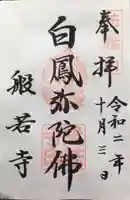 奉拝
令和二年
十月三日
白鳳弥陀佛
般若寺